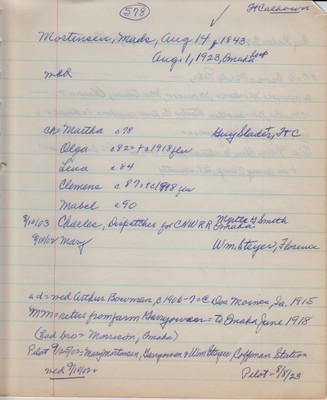 578
Ft Calhoun
Mortensen, Mads, Aug 14, 1843
Aug 1, 1923, Omaha hosp
m&R
ch: Martha c78 Guy Slader, Ft C
Olga c82 + c1918 flu
Lena c84
Clemens c87 + c1918 flu
Mabel c90
8/10/03 Charles, Dispatcher for CNWRR Myrtle Y Smith
Omaha
9/10/02 Mary Wm Steyer, Florence
ad = wed Arthur Bowman, c1906-7 = C Des Moines, Ia. 1915
M m = retire from farm Garyowen = to Omaha June 1918
(Bad bro = Morrison, Omaha)
Pilot 9/25/02: Mary Mortensen, Garyowen & Wm Steyer, Coffman Station
wed 9/19/02 Pilot - 8/8/23